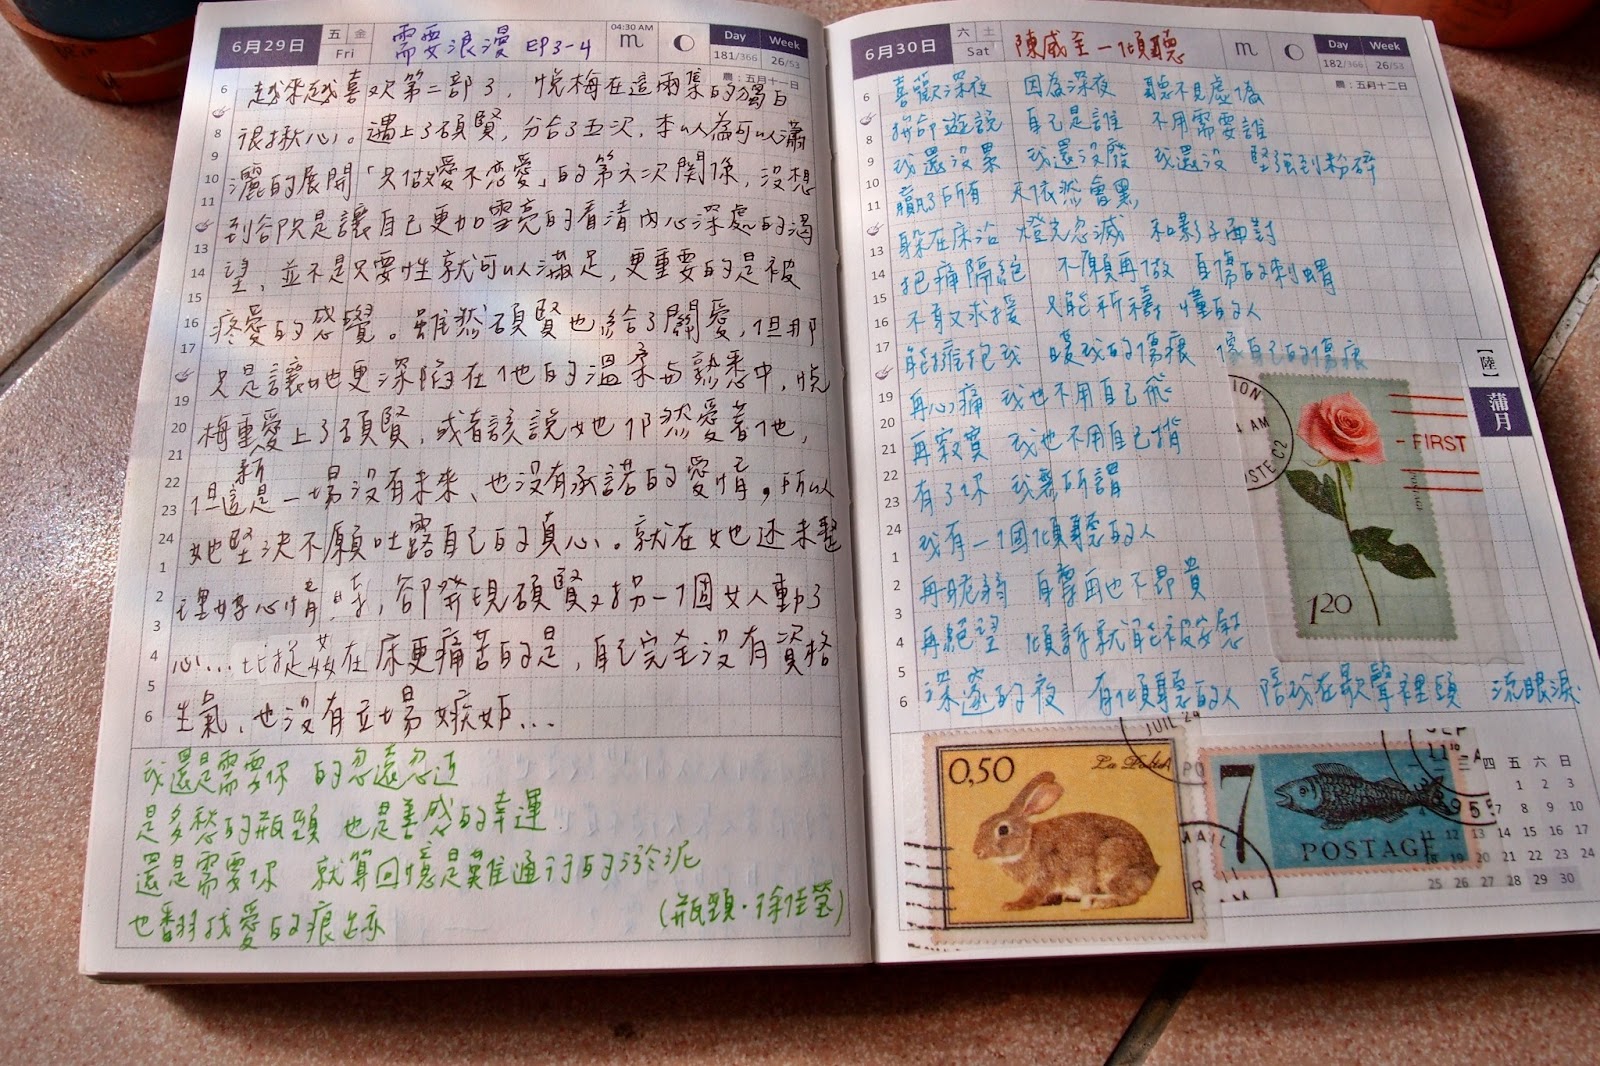 6月29日 五 金 Fri 需要浪漫 EP3-4 04:30 AM ♏ Day 181/366 Week 26/53
農：五月十一日
越來越喜欢第二部了，悅梅在這兩集的獨白
很揪心。遇上了碩賢，分合了五次，本以為可以瀟
灑的展開「只做愛不恋愛」的第六次關係，沒想
到卻只是讓自己更加雪亮的看清內心深處的渴
望，並不是只要性就可以滿足，更重要的是被
疼愛的感覺。雖然碩賢也給了關愛，但那
只是讓她更深陷在他的溫柔与熟悉中，悅
梅重愛上了碩賢，或者該說她仍然愛著他，
新
但這是一場沒有未來、也沒有承諾的愛情，所以
她堅決不願吐露自己的真心。就在她还未整
理好心情時，卻發現碩賢又指一個女人動了
心...比捉姦在床更痛苦的是，自己完全沒有資格
生氣、也沒有立場嫉妒...
6
8
9
10
11
13
14
15
16
17
19
20
21
22
23
24
1
2
3
4
5
6
我還是需要你 的忽遠忽近
是多愁的瓶頸 也是善感的幸運
還是需要你 就算回憶是難通行的淤泥
也翻找愛的痕跡
(瓶頸·徐佳瑩)
6月30日 六 土 Sat 陳威全－傾聽 ♏ Day 182/366 Week 26/53
農：五月十二日
喜歡深夜 因為深夜 聽不見虛偽
拚命遊說 自己是誰 不用需要誰
我還沒累 我還沒廢 我還沒 堅強到粉碎
贏了所有 天依然會黑
躲在床沿 燈光忽滅 和影子面對
把痛隔絕 不願再做 自傷的刺蝟
不敢求援 只能祈禱 懂的人
能擁抱我 暖我的傷痕 像自己的傷痕
再心痛 我也不用自己飛
再寂寞 我也不用自己揹
有了你 我無所謂
我有一個傾聽的人
再脆弱 自尊再也不昂貴
再絕望 傾訴就能被安慰
深邃的夜 有傾聽的人 陪我在歌聲裡頭 流眼淚
6
8
9
10
11
13
14
15
16
17
19
20
21
22
23
24
1
2
3
4
5
6
【陸】
蒲月
ION
AM
OSTE C2
FIRST
120
0,50
JUIL 24
PO
MAIL
7
POSTAGE
SEP
11
1955
三 四 五 六 日
1 2 3
7 8 9 10
11 12 13 14 15 16 17
18 19 20 21 22 23 24
25 26 27 28 29 30